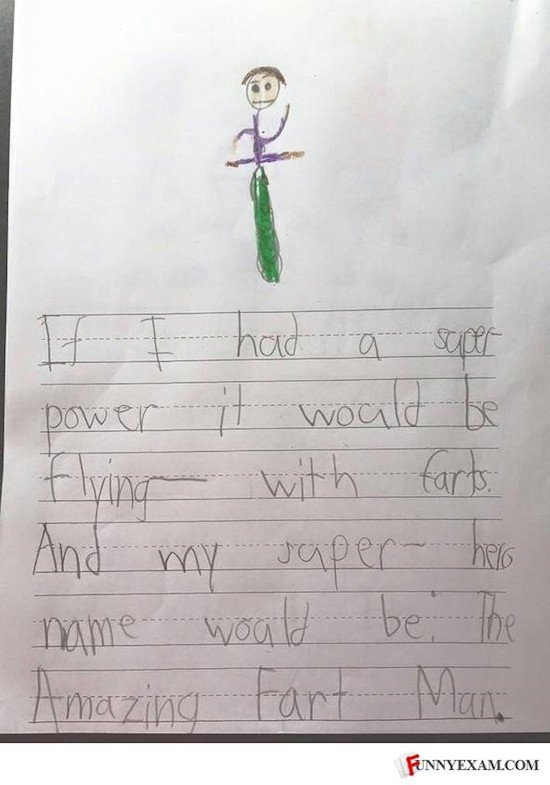 If I had a super
power it would be
flying— with farts.
And my super— hero
name would be: The
Amazing Fart Man.
FUNNYEXAM.COM